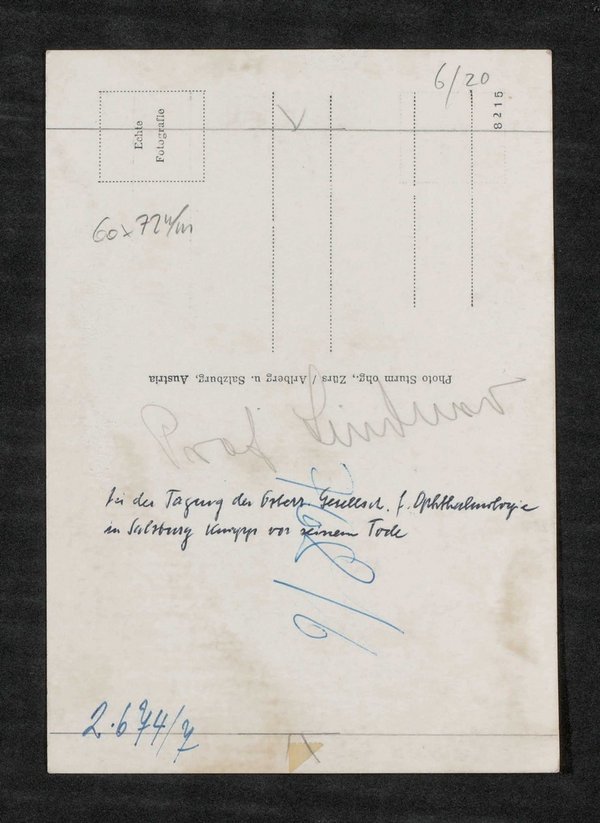 6/20
8215
Echte
Fotografie
60 x 72 m/m
Photo Sturm ohg., Zürs / Arlberg u. Salzburg, Austria
Prof Lindner
bei der Tagung der Österr. Gesellsch. f. Ophthalmologie
in Salzburg knapp vor seinem Tode
2.674/7